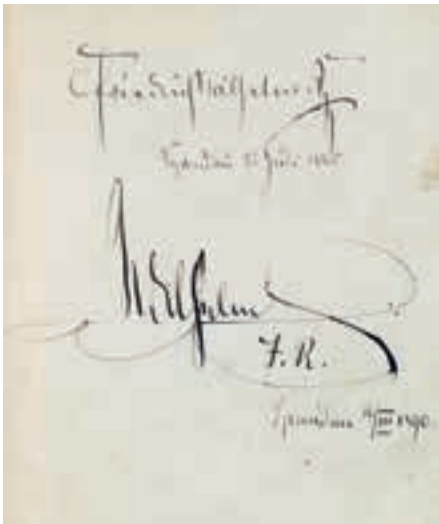 Friedrich Wilhelm
Spandau Juli
Wilhelm
I. R.
Spandau III 1890.